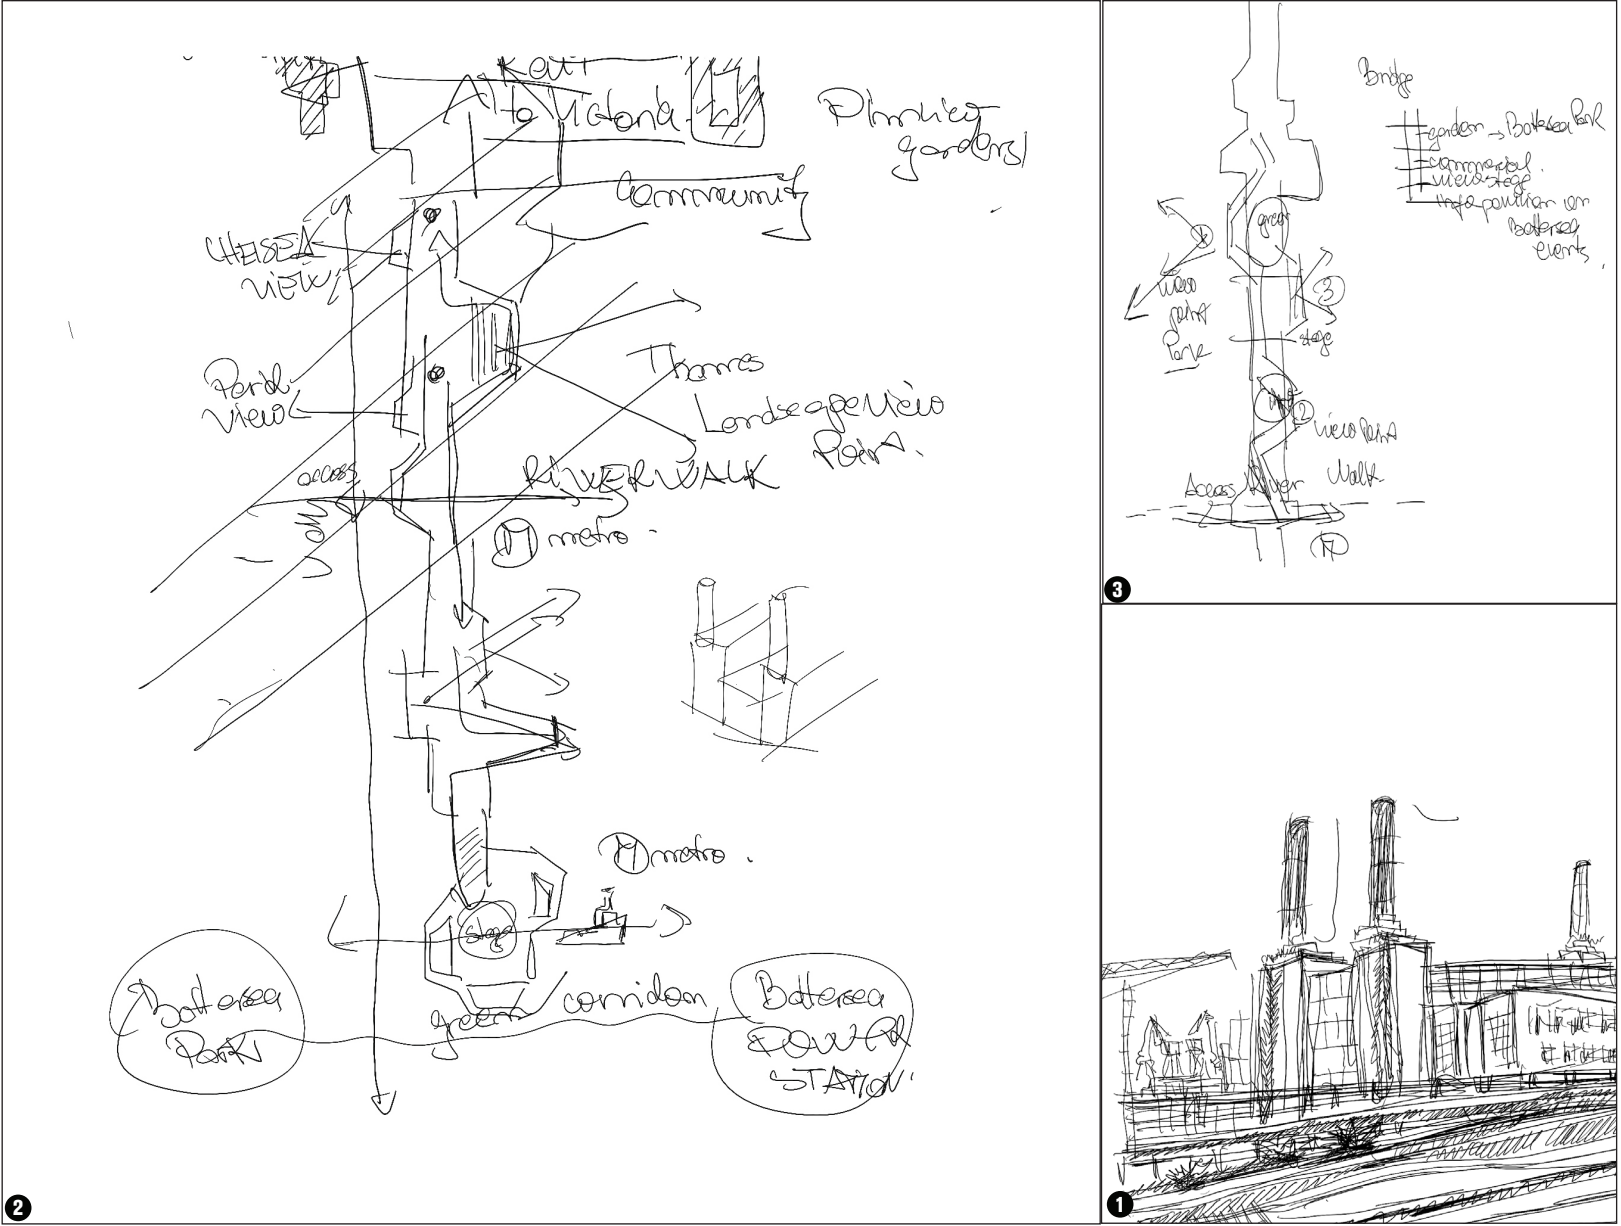 to Victoria
Pimlico
gardens
Community
CHELSEA
VIEW
View
Thames
Landscape View
Point.
access
RIWERWALK
M metro.
M metro.
stage
Battersea
Park
green corridor
Battersea
POWER
STATION.
2
Bridge
garden → Battersea Park
commercial.
view stage
info pavilion on
Battersea
events.
green
View
point
Park
3
stage
2
View Point
Access River Walk
M
3
1